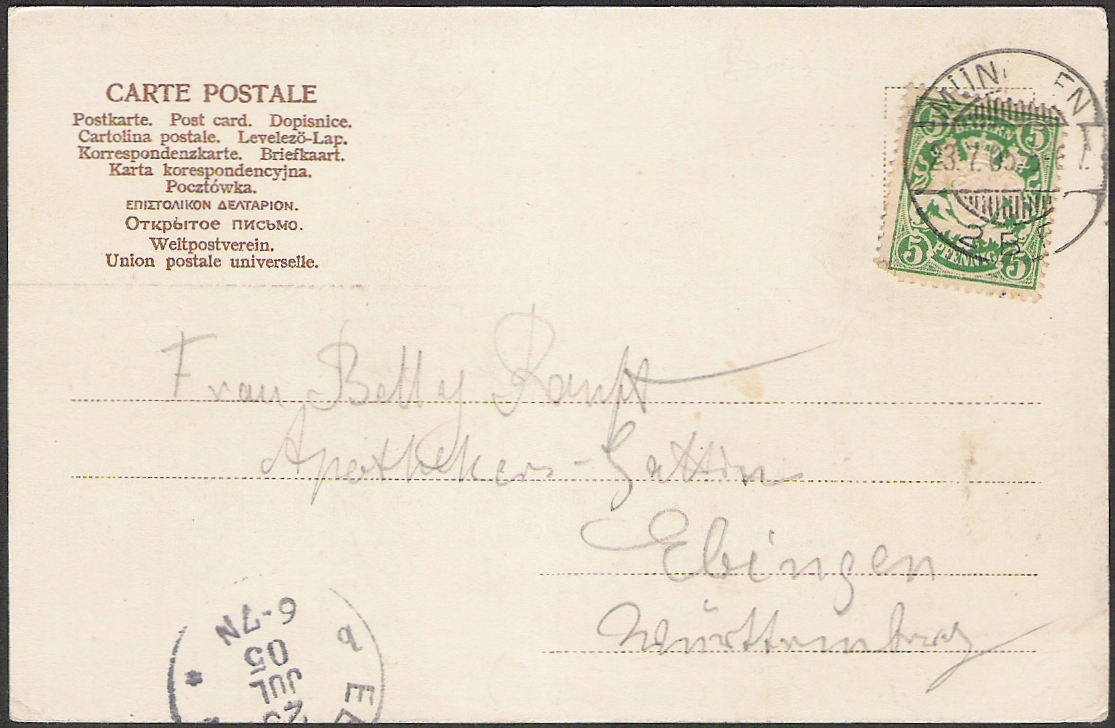 CARTE POSTALE
Postkarte. Post card. Dopisnice.
Cartolina postale. Levelező-Lap.
Korrespondenzkarte. Briefkaart.
Karta korespondencyjna.
Pocztówka.
ΕΠΙΣΤΟΛΙΚΟΝ ΔΕΛΤΑΡΙΟΝ.
Открытое письмо.
Weltpostverein.
Union postale universelle.
5 BAYERN 5
5 PFENNIG 5
MÜN EN
23. 7. 05
Frau Betty Ranft
Apothekers-Gattin
Ebingen
Württemberg
6-7N
05
JUL